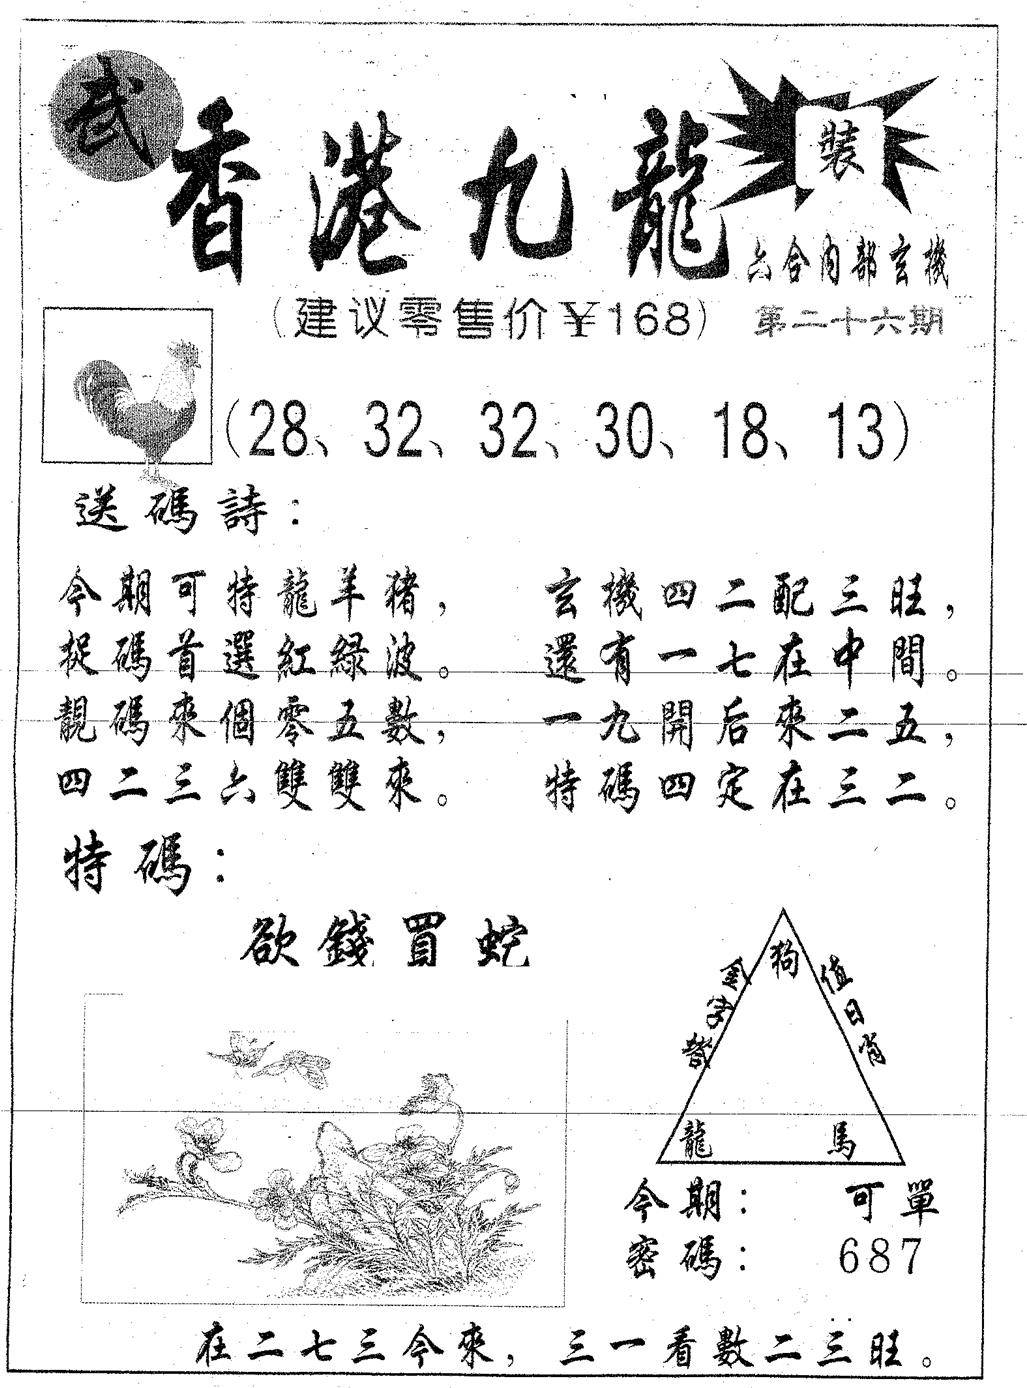 武
香港九龍
裝
六合内部玄機
（建议零售价￥168）
第二十六期
（28、32、32、30、18、13）
送碼詩：
今期可特龍羊猪，
捉碼首選紅綠波。
靚碼來個零五數，
四二三六雙雙來。
玄機四二配三旺，
還有一七在中間。
一九開后來二五，
特碼四定在三二。
特碼：
欲錢買蛇
金字塔
狗
值日肖
龍
馬
今期：可單
密碼：687
在二七三今來，三一看數二三旺。